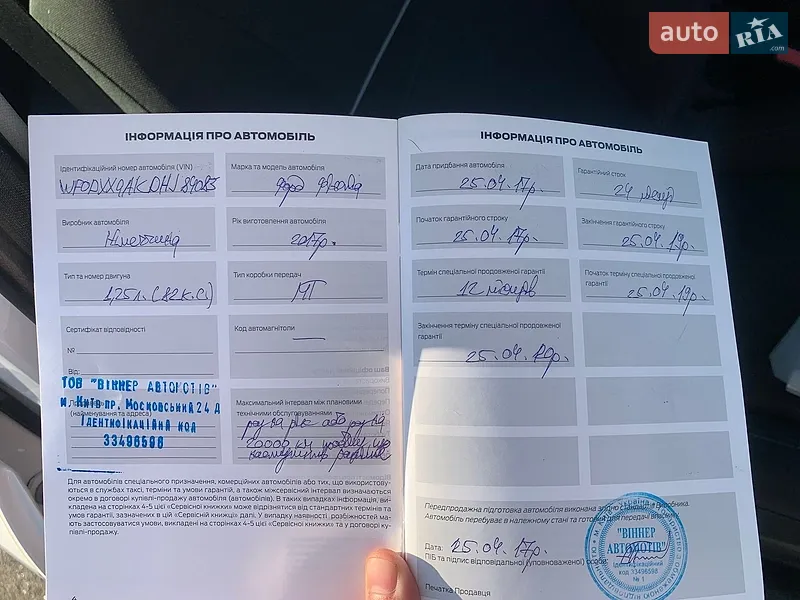 auto RIA .com
ІНФОРМАЦІЯ ПРО АВТОМОБІЛЬ
Ідентифікаційний номер автомобіля (VIN)
Марка та модель автомобіля
Форд Фієста
Виробник автомобіля
Німеччина
Рік виготовлення автомобіля
2017р.
Тип та номер двигуна
1,25л. (82к.с)
Тип коробки передач
МТ
Сертифікат відповідності
№
Від:
Код автомагнітоли
—
ТОВ "ВІННЕР АВТОМОТІВ"
м. Київ пр. Московський 24 Д
(найменування та адреса)
ІДЕНТИФІКАЦІЙНИЙ КОД
33496598
Максимальний інтервал між плановими
технічними обслуговуваннями
раз на рік або раз на
20000 км пробігу, що
Для автомобілів спеціального призначення, комерційних автомобілів або тих, що використову-
ються в службах таксі, терміни та умови гарантій, а також міжсервісний інтервал визначаються
окремо в договорі купівлі-продажу автомобіля (автомобілів). В таких випадках інформація, ви-
кладена на сторінках 4-5 цієї «Сервісної книжки» може відрізнятися від стандартних термінів та
умов гарантій, зазначених в цій «Сервісній книжці» далі. У випадку наявності розбіжностей ма-
ють застосовуватися умови, викладені на сторінках 4-5 цієї «Сервісної книжки» та у договорі ку-
півлі-продажу.
ІНФОРМАЦІЯ ПРО АВТОМОБІЛЬ
Дата придбання автомобіля
25.04.17р.
Гарантійний строк
24 місяці
Початок гарантійного строку
25.04.17р.
Закінчення гарантійного строку
25.04.19р.
Термін спеціальної продовженої гарантії
12 місяців
Початок терміну спеціальної продовженої
гарантії
25.04.19р.
Закінчення терміну спеціальної продовженої
гарантії
25.04.20р.
Передпродажна підготовка автомобіля виконана згідно стандартів Виробника.
Автомобіль перебуває в належному стані та готовий для передачі власнику.
Дата: 25.04.17р.
ПІВ та підпис відповідальної (уповноваженої) особи:
Печатка Продавця
"ВІННЕР
АВТОМОТІВ"
Ідентифікаційний
код 33496598
№ 1